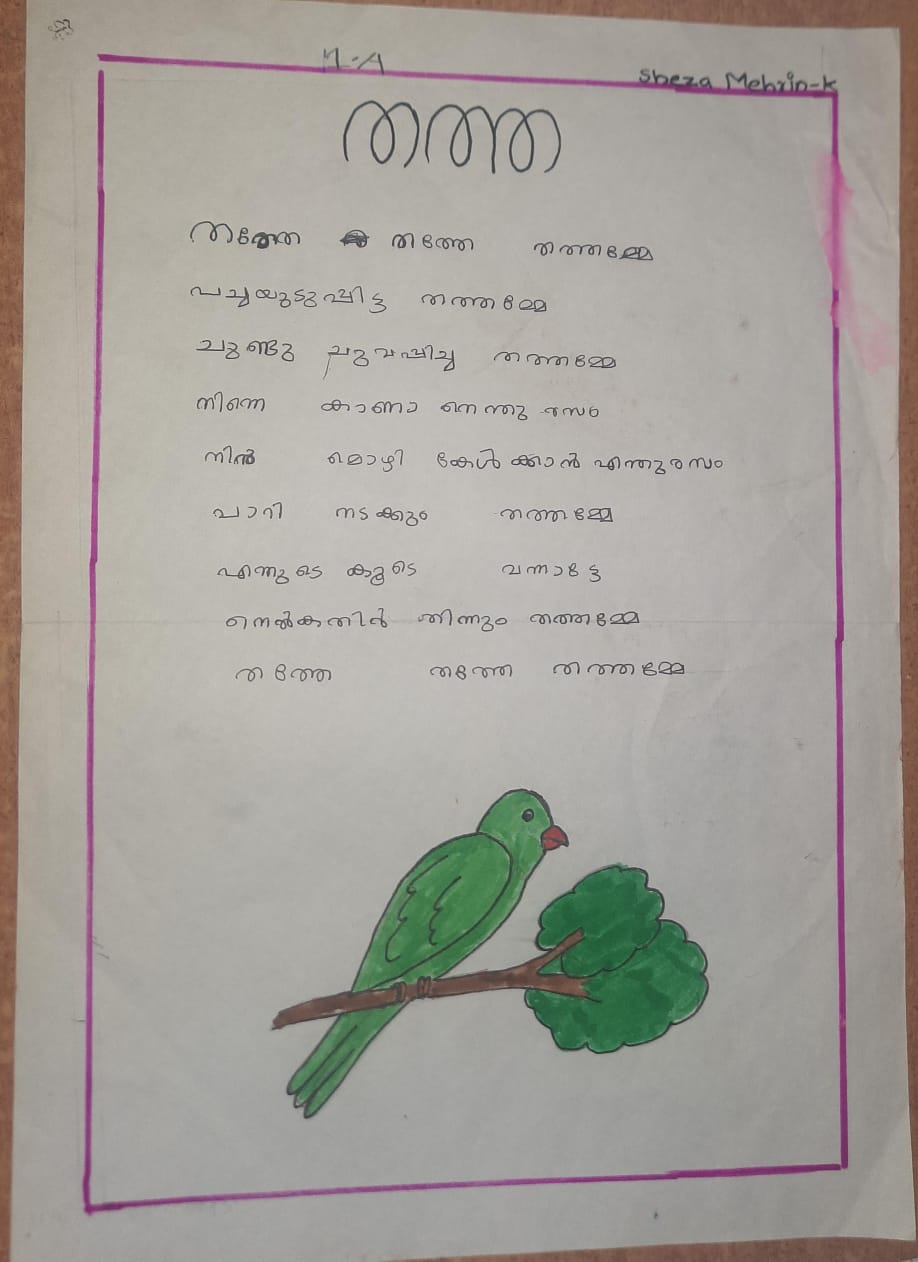 1-A
Sheza Mehrin-K
തത്ത
തത്തേ തത്തേ തത്തമ്മേ
പച്ചയുടുപ്പിട്ട തത്തമ്മേ
ചുണ്ടു ചുവപ്പിച്ച തത്തമ്മേ
നിന്നെ കാണാ നെന്തു രസം
നിൻ മൊഴി കേൾ ക്കാൻ എന്തുരസം
പാറി നടക്കും തത്തമ്മേ
എന്നുടെ കൂടെ വന്നാട്ടേ
നെൽകതിർ തിന്നും തത്തമ്മേ
തത്തേ തത്തേ തത്തമ്മേ